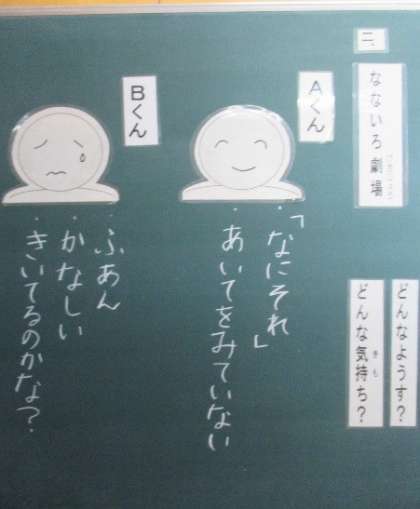 二、
なないろ劇場
どんなようす?
どんな気持ち?
Aくん
・「なにそれ」
・あいてをみていない
Bくん
・ふあん
・かなしい
・きいてるのかな?